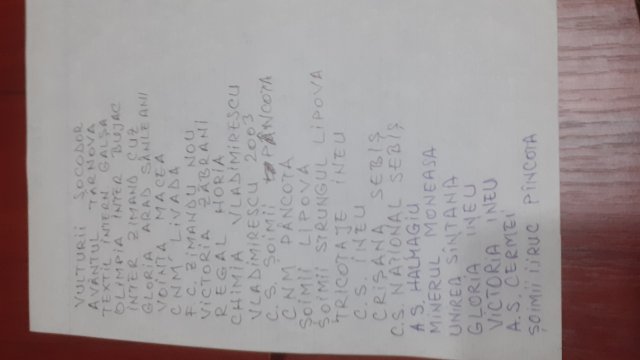 VULTURII SOCODOR
AVÂNTUL TÂRNOVA
TEXTIL INTERN GALȘA
OLIMPIA INTER BUJAC
INTER ZIMAND CUZ
GLORIA ARAD SÂNLEANI
VOINȚA MACEA
CNM LIVADA
F.C. ZIMANDU NOU
VICTORIA ZĂBRANI
REGAL HORIA
CHIMIA VLADIMIRESCU
VLADIMIRESCU 2003
C.S. ȘOIMII PÂNCOTA
CNM PÂNCOTA
ȘOIMII LIPOVA
ȘOIMII STRUNGUL LIPOVA
TRICOTAJE INEU
C.S. INEU
CRIȘANA SEBIȘ
C.S. NAȚIONAL SEBIȘ
A.S. HALMAGIU
MINERUL MONEASA
UNIREA SÎNTANA
GLORIA INEU
VICTORIA INEU
A.S. CERMEI
ȘOIMII PÎNCOTA